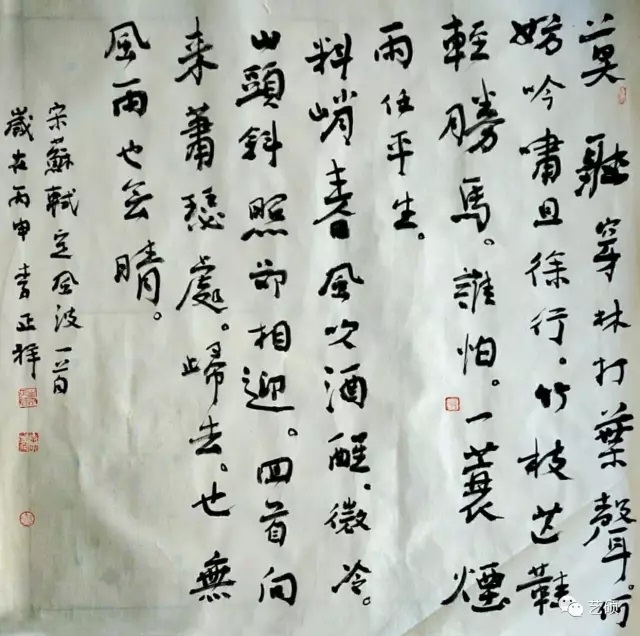 莫聽穿林打葉聲。何
妨吟嘯且徐行。竹枝芒鞋
輕勝馬。誰怕。一蓑煙
雨任平生。
料峭春風吹酒醒。微冷。
山頭斜照卻相迎。回首向
来蕭瑟處。歸去。也無
風雨也无晴。
宋蘇軾定風波一首
歲在丙申 正祥
艺硕